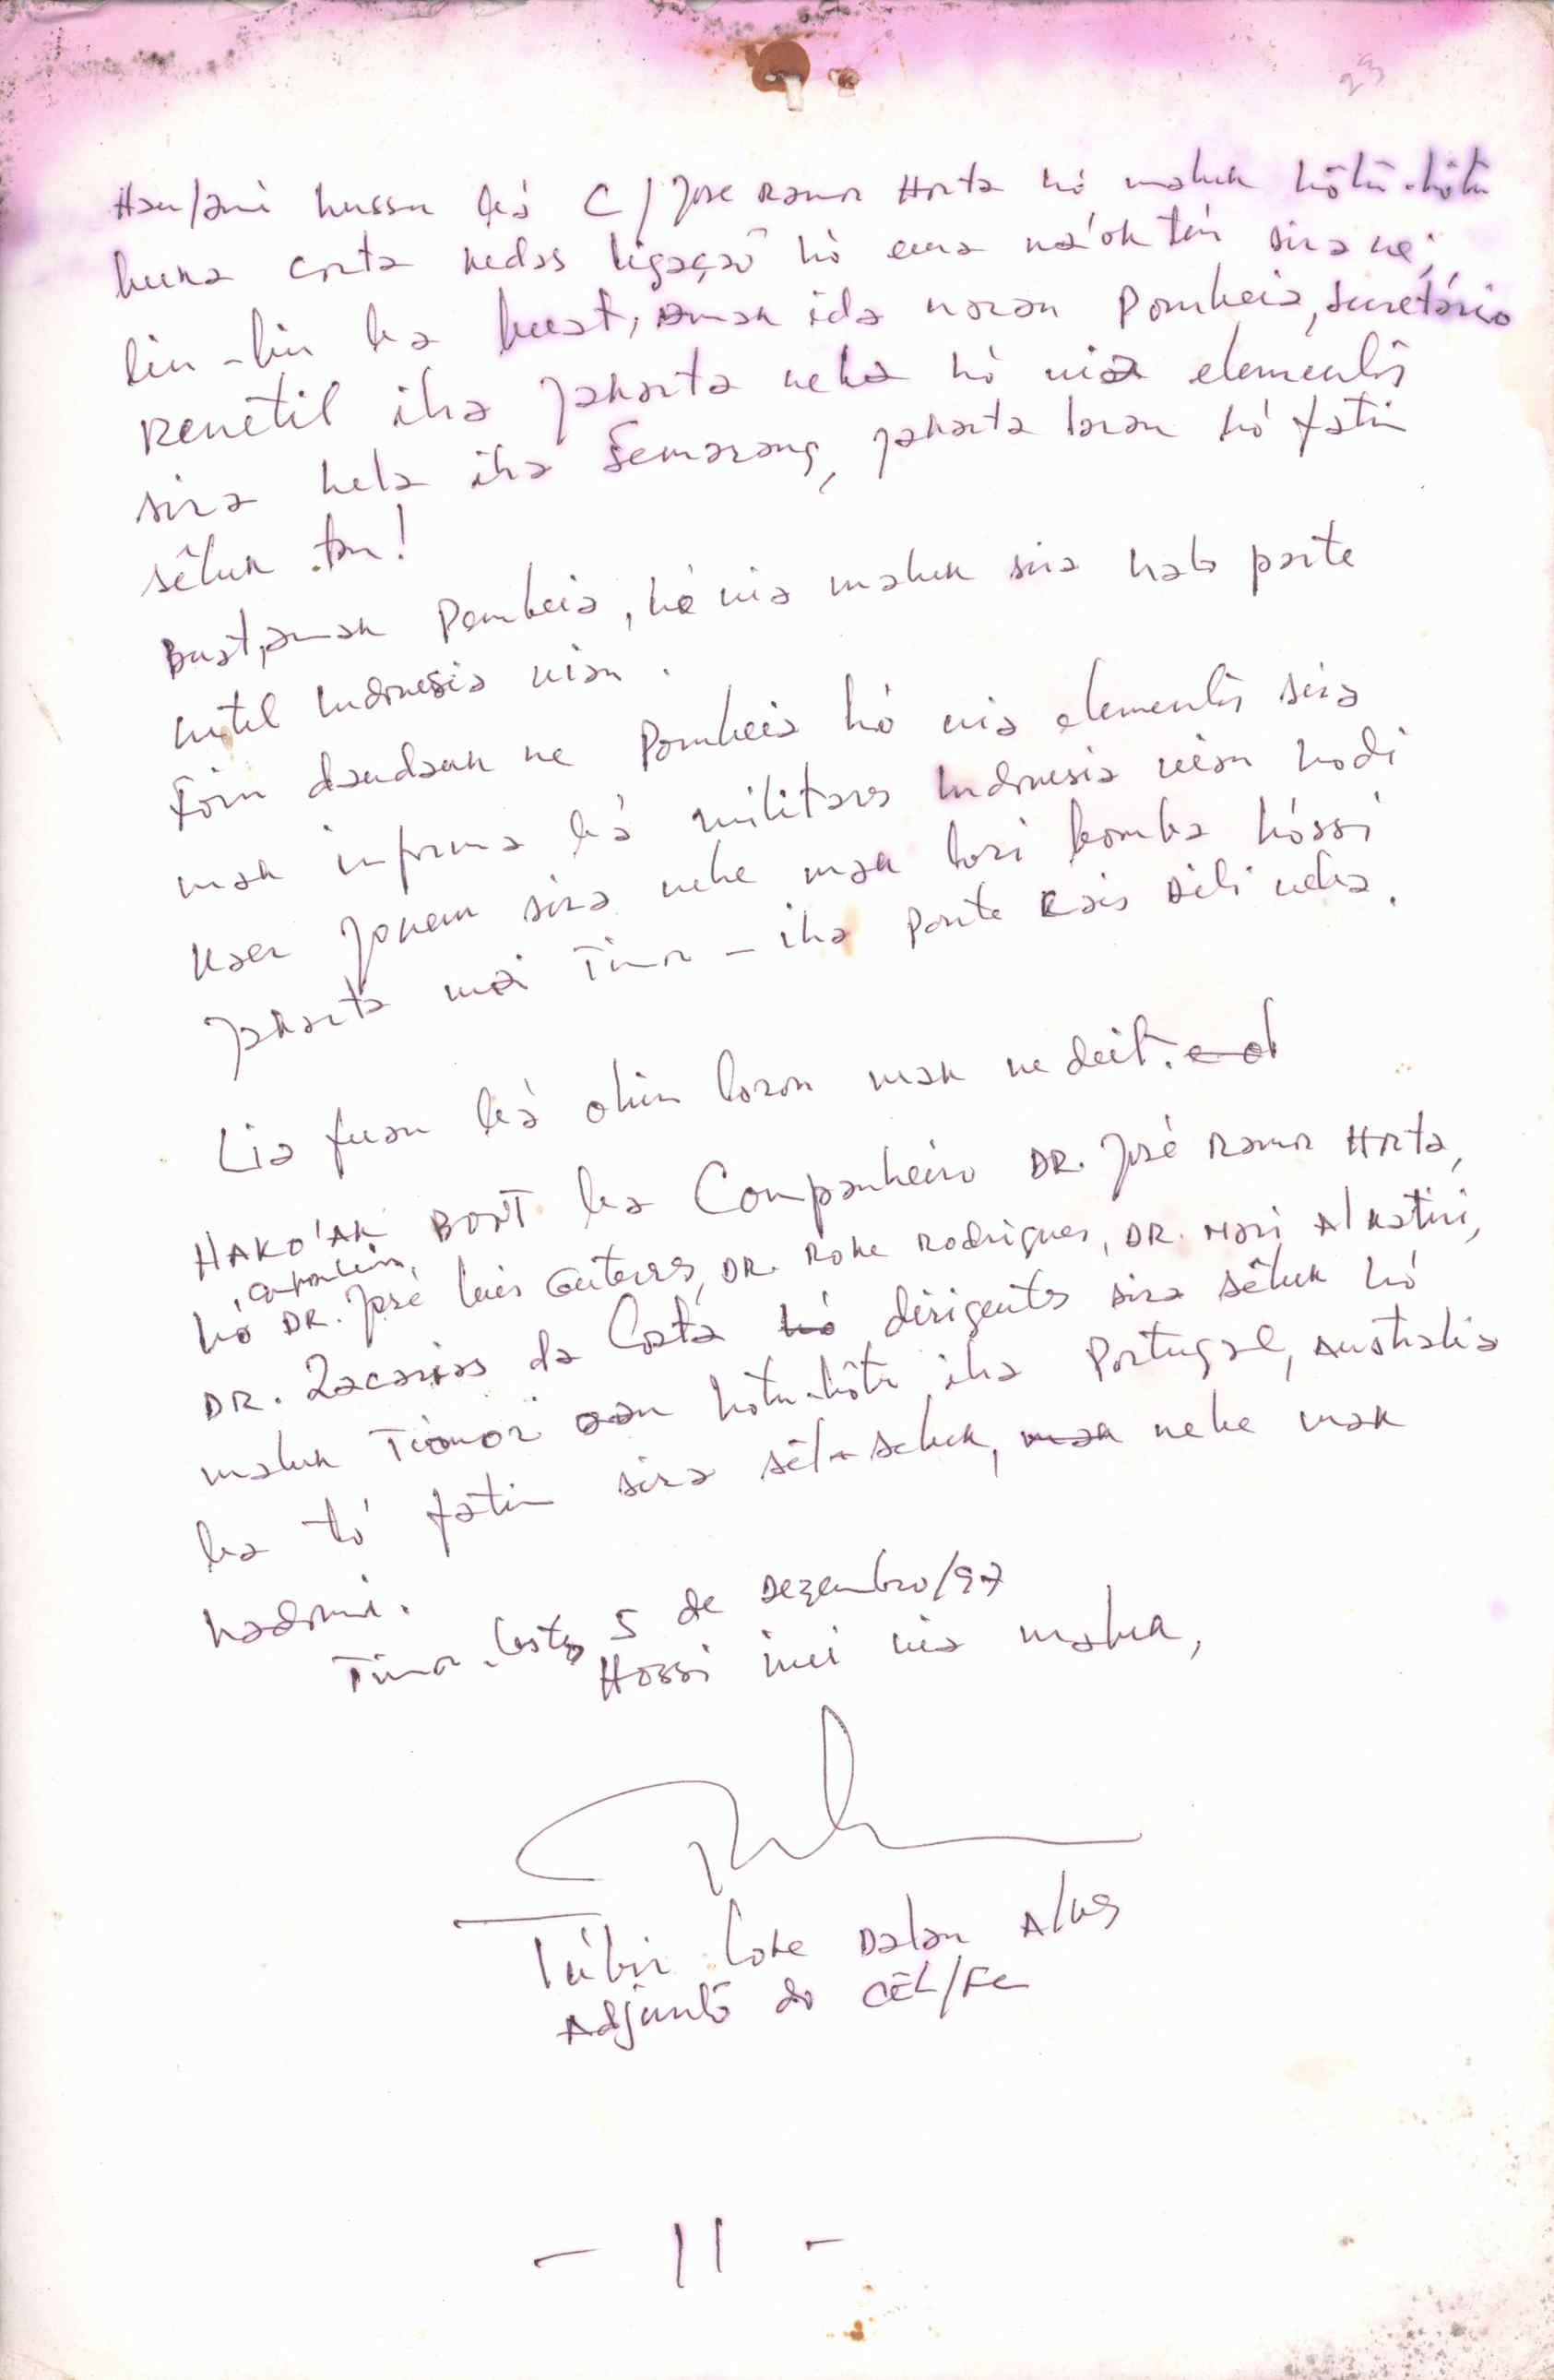 23
Hau/ami hussu bá C/ José Ramos Horta hó maluk hôtu-hôtu
buka corta kedas ligação hó ema na'ok tén sira né,
liu-liu ba buat, aman ida naran Pombeia, secretário
Renetil iha Jakarta neba hó nia elementos
sira hela iha Semarang, Jakarta laran hó fatin
sêluk tan!
Buat, aman Pombeia, hó nia maluk sira halo parte
intel Indonesia nian.
Foin daudauk ne Pombeia hó nia elementos sira
mak informa bá militares Indonesia nian hodi
kaer Jovem sira nebe mak lori bomba hóssi
Jakarta mai Timor - iha Ponte Cais Dili neba.
Lia fuan bá ohin loron mak ne deit.
HAKO'AK BOOT ba Companheiro DR. José Ramos Horta,
hó companheiro, DR. José Luis Guterres, DR. Roke Rodrigues, DR. Mari Alkatiri,
DR. Zacarias da Costa hó dirigentes sira sêluk hó
maluk Timor oan hôtu-hôtu iha Portugal, Australia
ba tó fatin sira sêlu-seluk, mak nebe mak
hadomi.
Timor-Leste, 5 de Dezembro/97
Hossi imi nia maluk,
Lere
Dalan Alus
Adjunto do CEL/FE
- 11 -